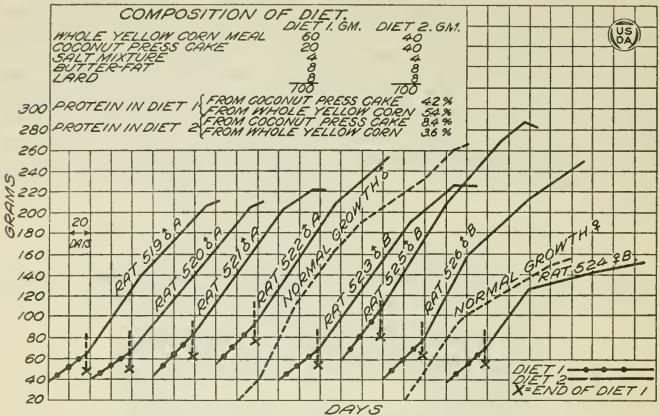 COMPOSITION OF DIET.
DIET 1.GM. DIET 2.GM.
WHOLE YELLOW CORN MEAL 60 40
COCONUT PRESS CAKE 20 40
SALT MIXTURE 4 4
BUTTER-FAT 8 8
LARD 8 8
100 100
PROTEIN IN DIET 1 { FROM COCONUT PRESS CAKE 4.2 %
FROM WHOLE YELLOW CORN 5.4 %
PROTEIN IN DIET 2 { FROM COCONUT PRESS CAKE 8.4 %
FROM WHOLE YELLOW CORN 3.6 %
US
DA
300
280
260
240
220
200
180
160
140
120
100
80
60
40
20
GRAMS
20
DAYS
RAT 519 ♂ A
RAT 520 ♂ A
RAT 521 ♂ A
RAT 522 ♂ A
NORMAL GROWTH ♂
RAT 523 ♂ B
RAT 525 ♂ B
RAT 526 ♂ B
NORMAL GROWTH ♀
RAT 524 ♀ B.
DIET 1
DIET 2
X=END OF DIET 1
DAYS